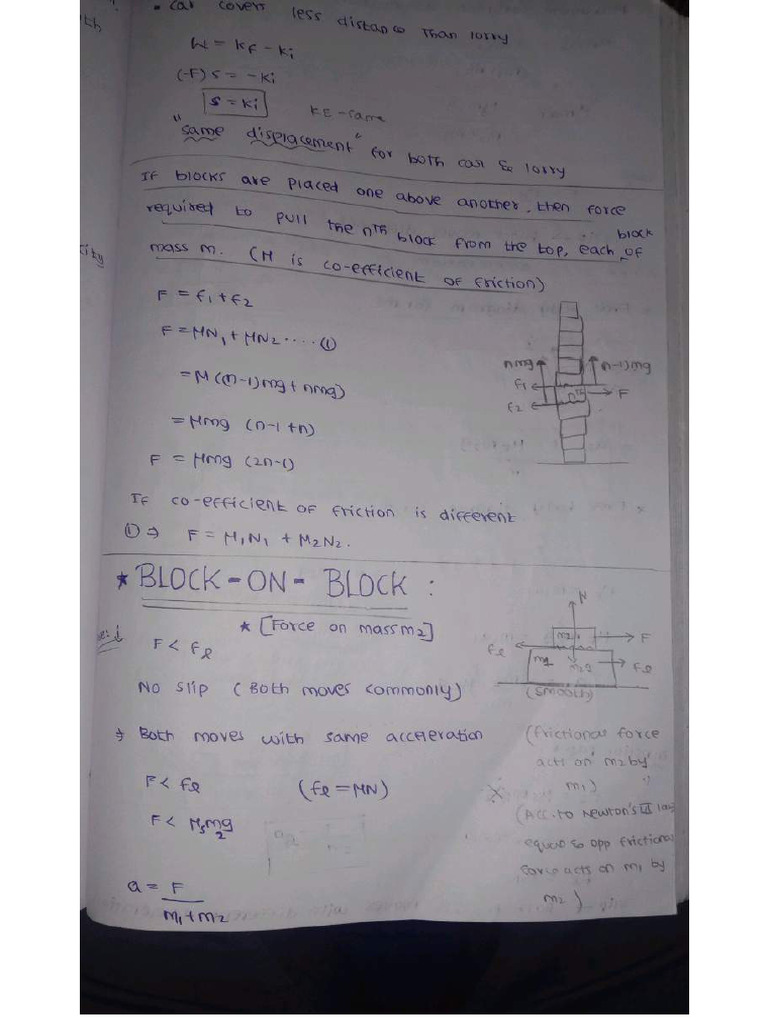 • Car covers less distance than lorry
W = KF - Ki
(-F) s = -Ki
s = Ki
KE-same
"same displacement" for both car & lorry
If blocks are placed one above another, then force
required to pull the nth block from the top, each block of
mass m. (μ is co-efficient of friction)
F = f1 + f2
F = μN1 + μN2 ..... ①
= μ((n-1)mg + nmg)
= μmg (n-1+n)
F = μmg (2n-1)
nmg
(n-1)mg
f1
nth
F
f2
If co-efficient of friction is different
① ⇒ F = μ1N1 + μ2N2.
* BLOCK-ON-BLOCK :
* [Force on mass m2]
F < fl
N
m2
F
fl
m1
m2g
fl
(smooth)
No slip (Both moves commonly)
⇒ Both moves with same acceleration
(frictional force
acts on m2 by
m1)
F < fl (fl = μN)
F < μsm2g
(Acc. to Newton's III law
equal & opp frictional
force acts on m1 by
m2)
a = F
m1 + m2